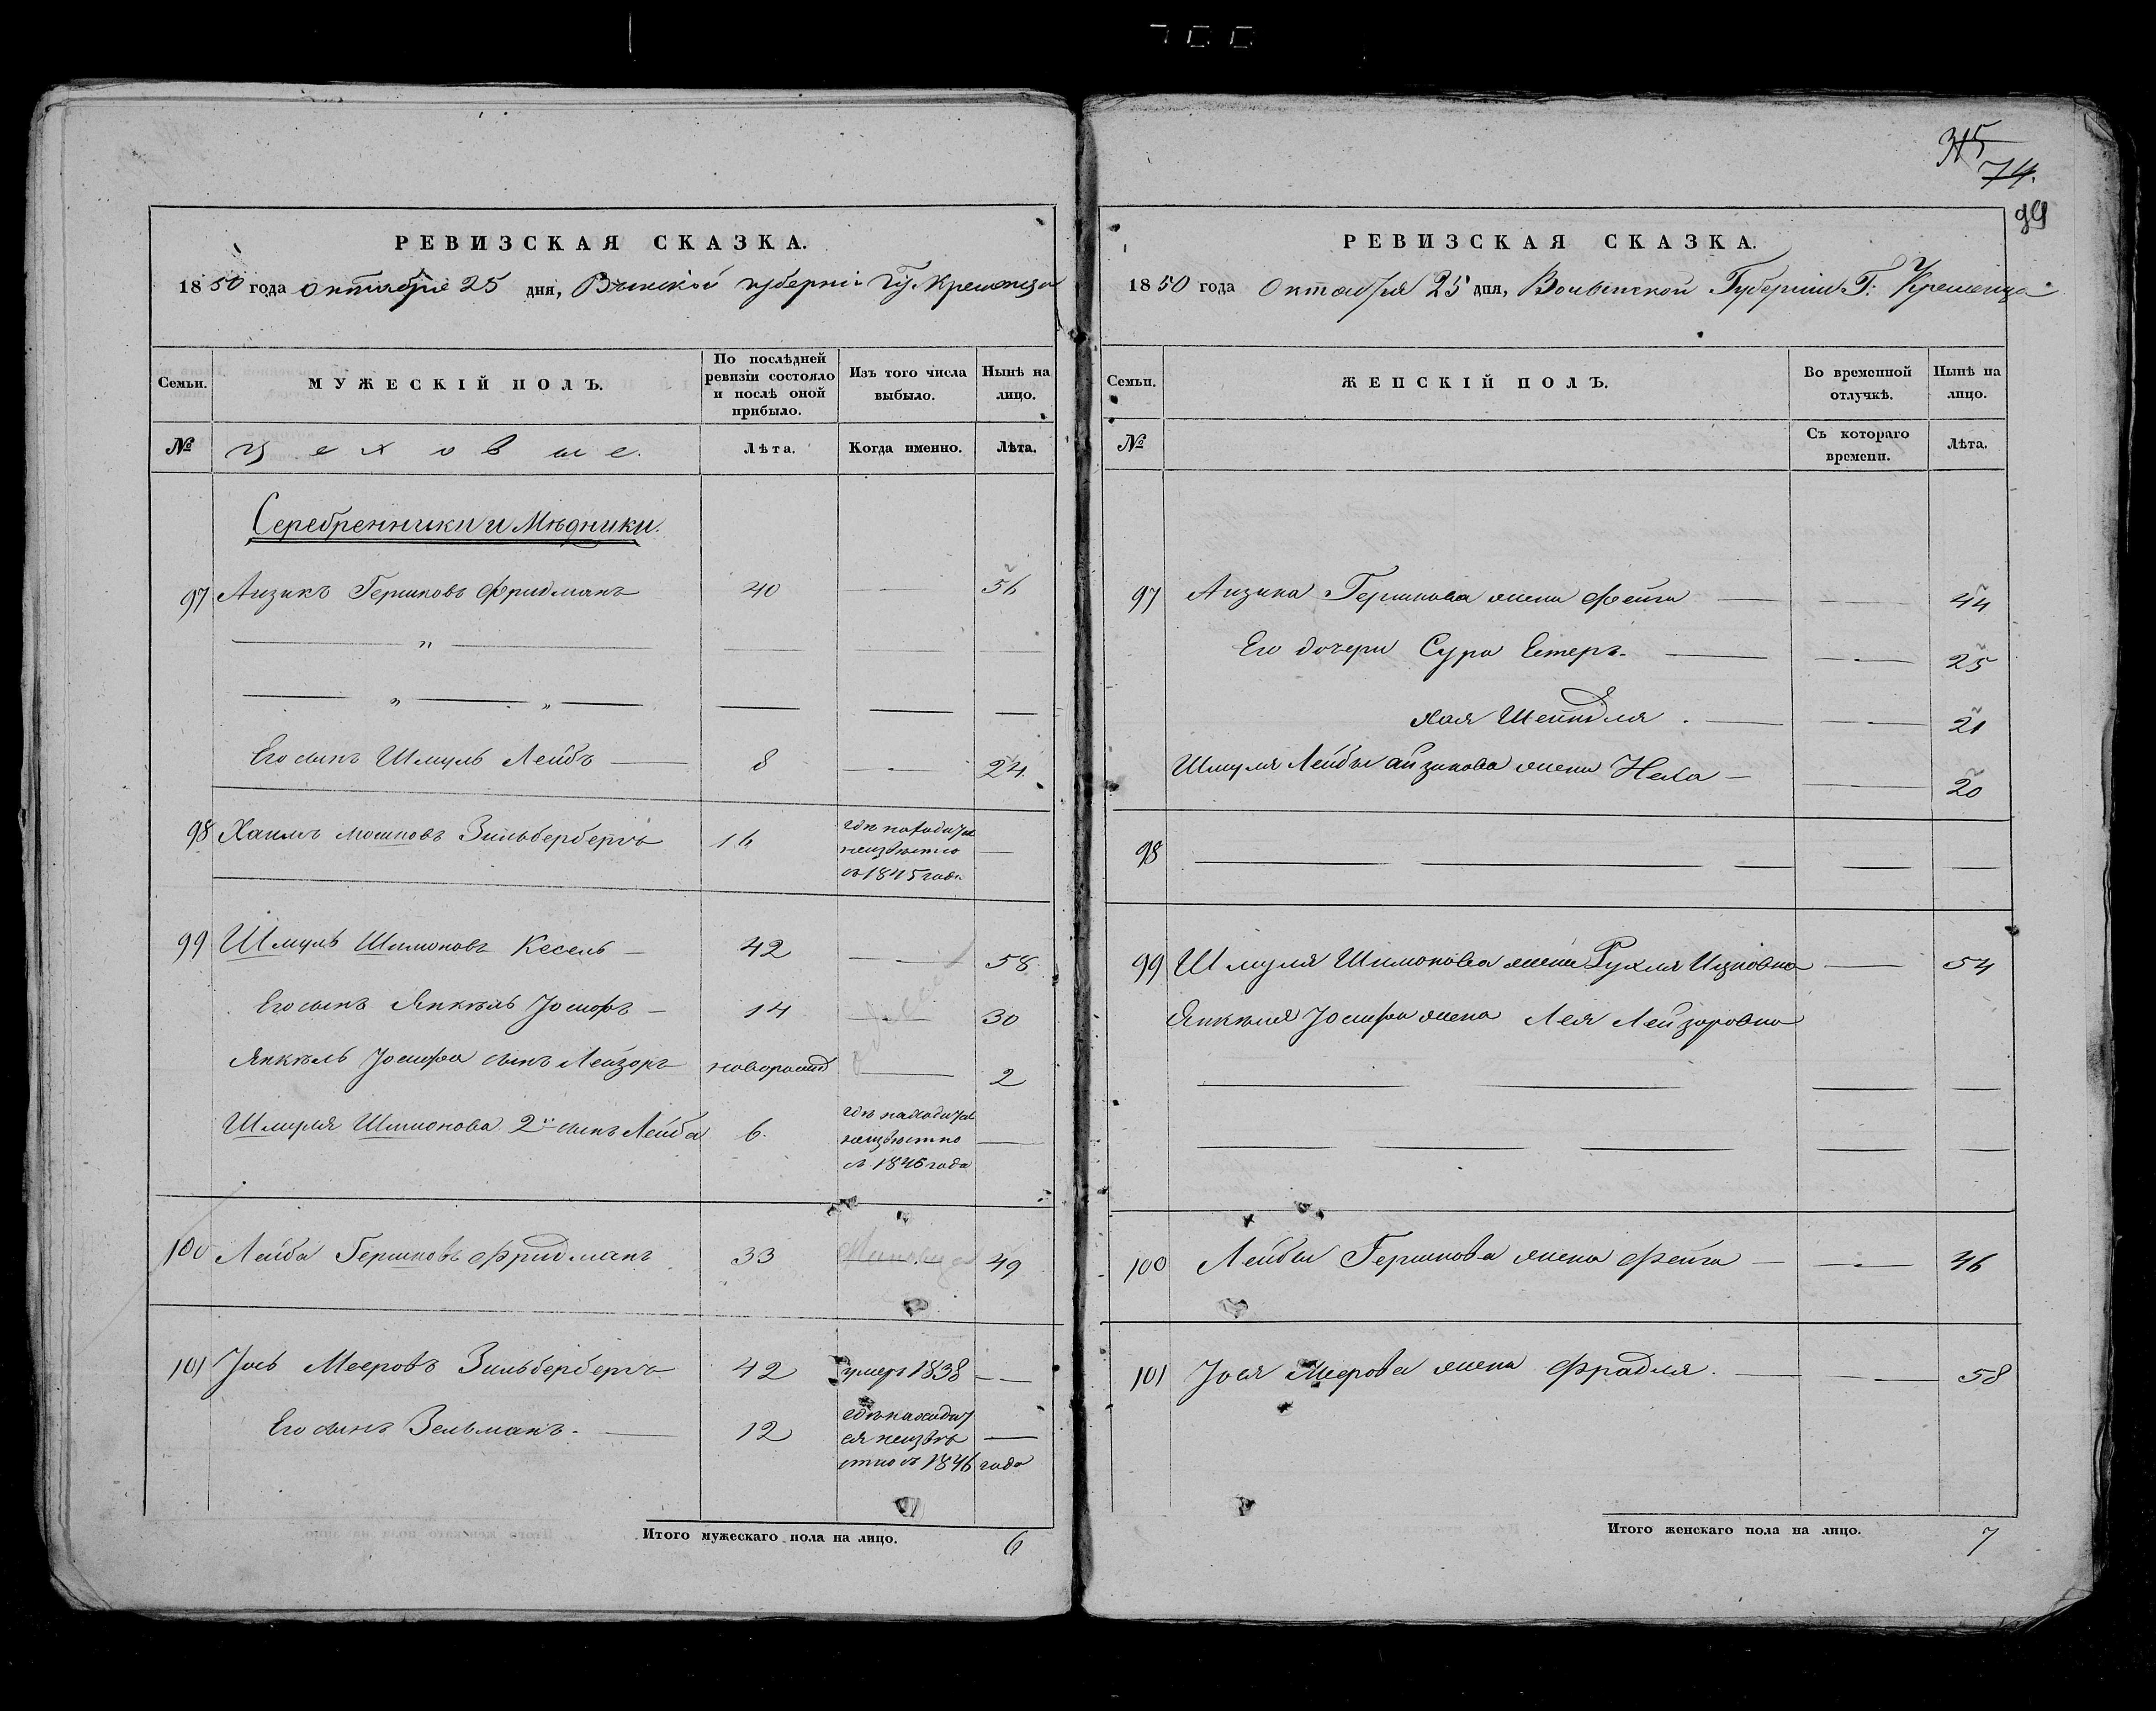 РЕВИЗСКАЯ СКАЗКА.
1850 года октября 25 дня, губернии Кременца
Семьи.
МУЖЕСКІЙ ПОЛЪ.
По послѣдней ревизіи состояло и послѣ оной прибыло.
Изъ того числа выбыло.
Нынѣ на лицо.
№
Цеховые.
Лѣта.
Когда именно.
Лѣта.
Серебренники и Мѣдники.
97 Аизикъ Гершковъ Фридманъ 40 — 56
— " —
— " — " —
Его сынъ Шмуль Лейбъ — 8 — 24
98 Хаимъ Мошковъ Зильбербергъ 16 гдѣ находится —
неизвѣстно
съ 1845 года
99 Шмуль Шимоновъ Кесель — 42 — 58
Его сынъ Янкѣль Іосифъ — 14 — 30
Янкѣль Іосифа сынъ Лейзоръ новорожд — 2
Шмуля Шимонова 2й сынъ Лейба 6. гдѣ находится —
неизвѣстно
съ 1846 года
100 Лейба Гершковъ Фридманъ 33 — 49
101 Іось Мееровъ Зильбербергъ 42 умеръ 1838 —
Его сынъ Зельманъ. — 12 гдѣ находит
ся неизвѣ —
стно съ 1846 года
Итого мужескаго пола на лицо. 6
315
74.
99
РЕВИЗСКАЯ СКАЗКА.
1850 года Октября 25 дня, Волынской Губерніи Г. Кременца
Семьи.
ЖЕНСКІЙ ПОЛЪ.
Во временной отлучкѣ.
Нынѣ на лицо.
№
Съ котораго времени.
Лѣта.
97 Аизика Гершкова жена Фейга — — 44
Его дочери Сура Естеръ. — — 25
Хая Шейндля. — — 21
Шмуля Лейбы Айзикова жена Неха — — 20
98 — — — —
99 Шмуля Шимонова жена Рухля Ицковна — 54
Янкеля Іосифа жена Лея Лейзоровна
— — — —
— — — —
100 Лейбы Гершкова жена Фейга — — 46
101 Іося Меерова жена Фрадля. — — 58
Итого женскаго пола на лицо. 7